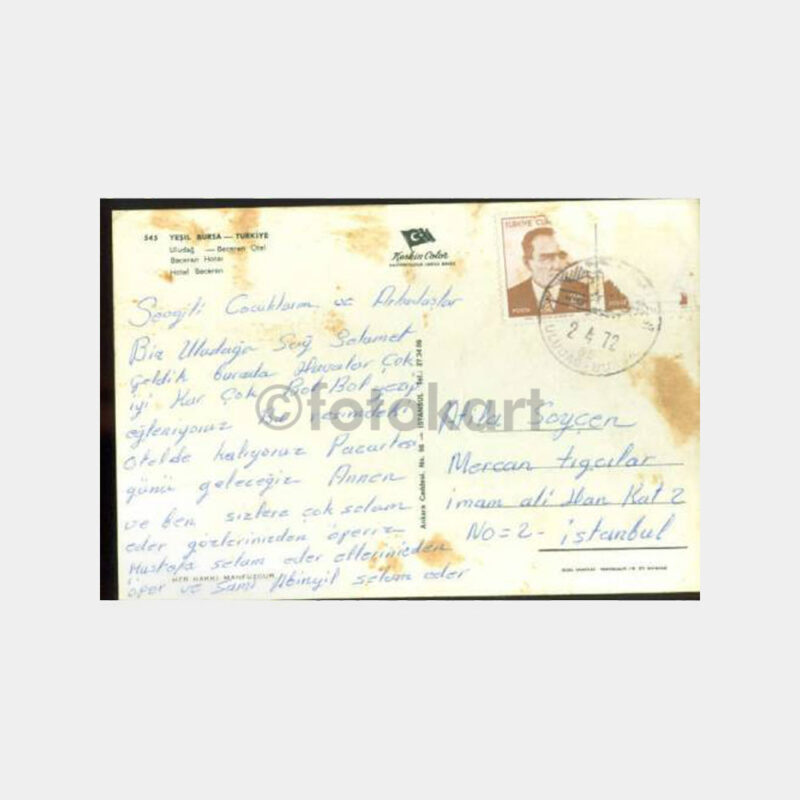 545 YEŞİL BURSA — TÜRKİYE
Uludağ — Beceren Otel
Beceren Hotel
Hotel Beceren
Keskin Color
TÜRKİYE CUM
POSTA
2 4 72
ULUDAĞ
Sevgili Çocuklarım ve Arkadaşlar
Biz Uludağa Sağ Selamet
geldik burada Havalar Çok
iyi Kar Çok Bol Bol
eğleniyoruz Bu resimdeki
otelde kalıyoruz Pazartesi
günü geleceğiz Annen
ve ben sizlere çok selam
eder gözlerinizden öperiz
Mustafa selam eder ellerinizden
öper ve Sami selam eder
HER HAKKI MAHFUZDUR
Ankara Caddesi. No. 98 — İSTANBUL Tel.: 27 34 06
©fotokart
Atila Soyçen
Mercan tığcılar
imam ali Han Kat 2
No=2 - istanbul